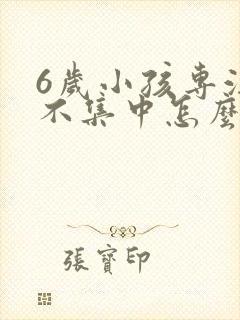 6歲小孩專注
不集中怎麼
張寶印